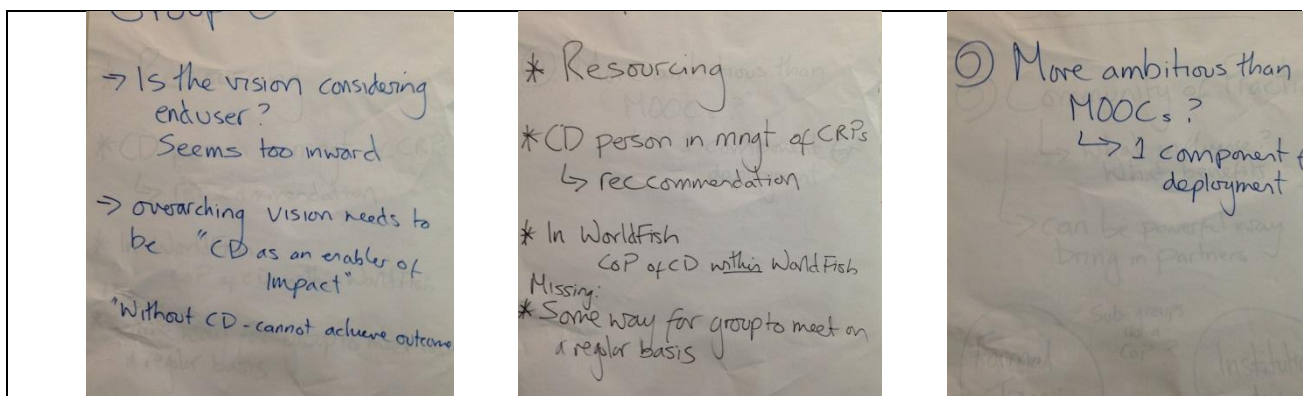 → Is the vision considering
enduser?
Seems too inward
→ overarching vision needs to
be "CD as an enabler of
Impact"
"Without CD - cannot achieve outcome
* Resourcing
* CD person in mngt of CRPs
↳ reccommendation
* In WorldFish
CoP of CD within WorldFish
Missing:
* Some way for group to meet on
a regular basis
More ambitious than
MOOCs?
↳ 1 component
deployment
↳ can be powerful way
bring in partners
Sub groups
Formal